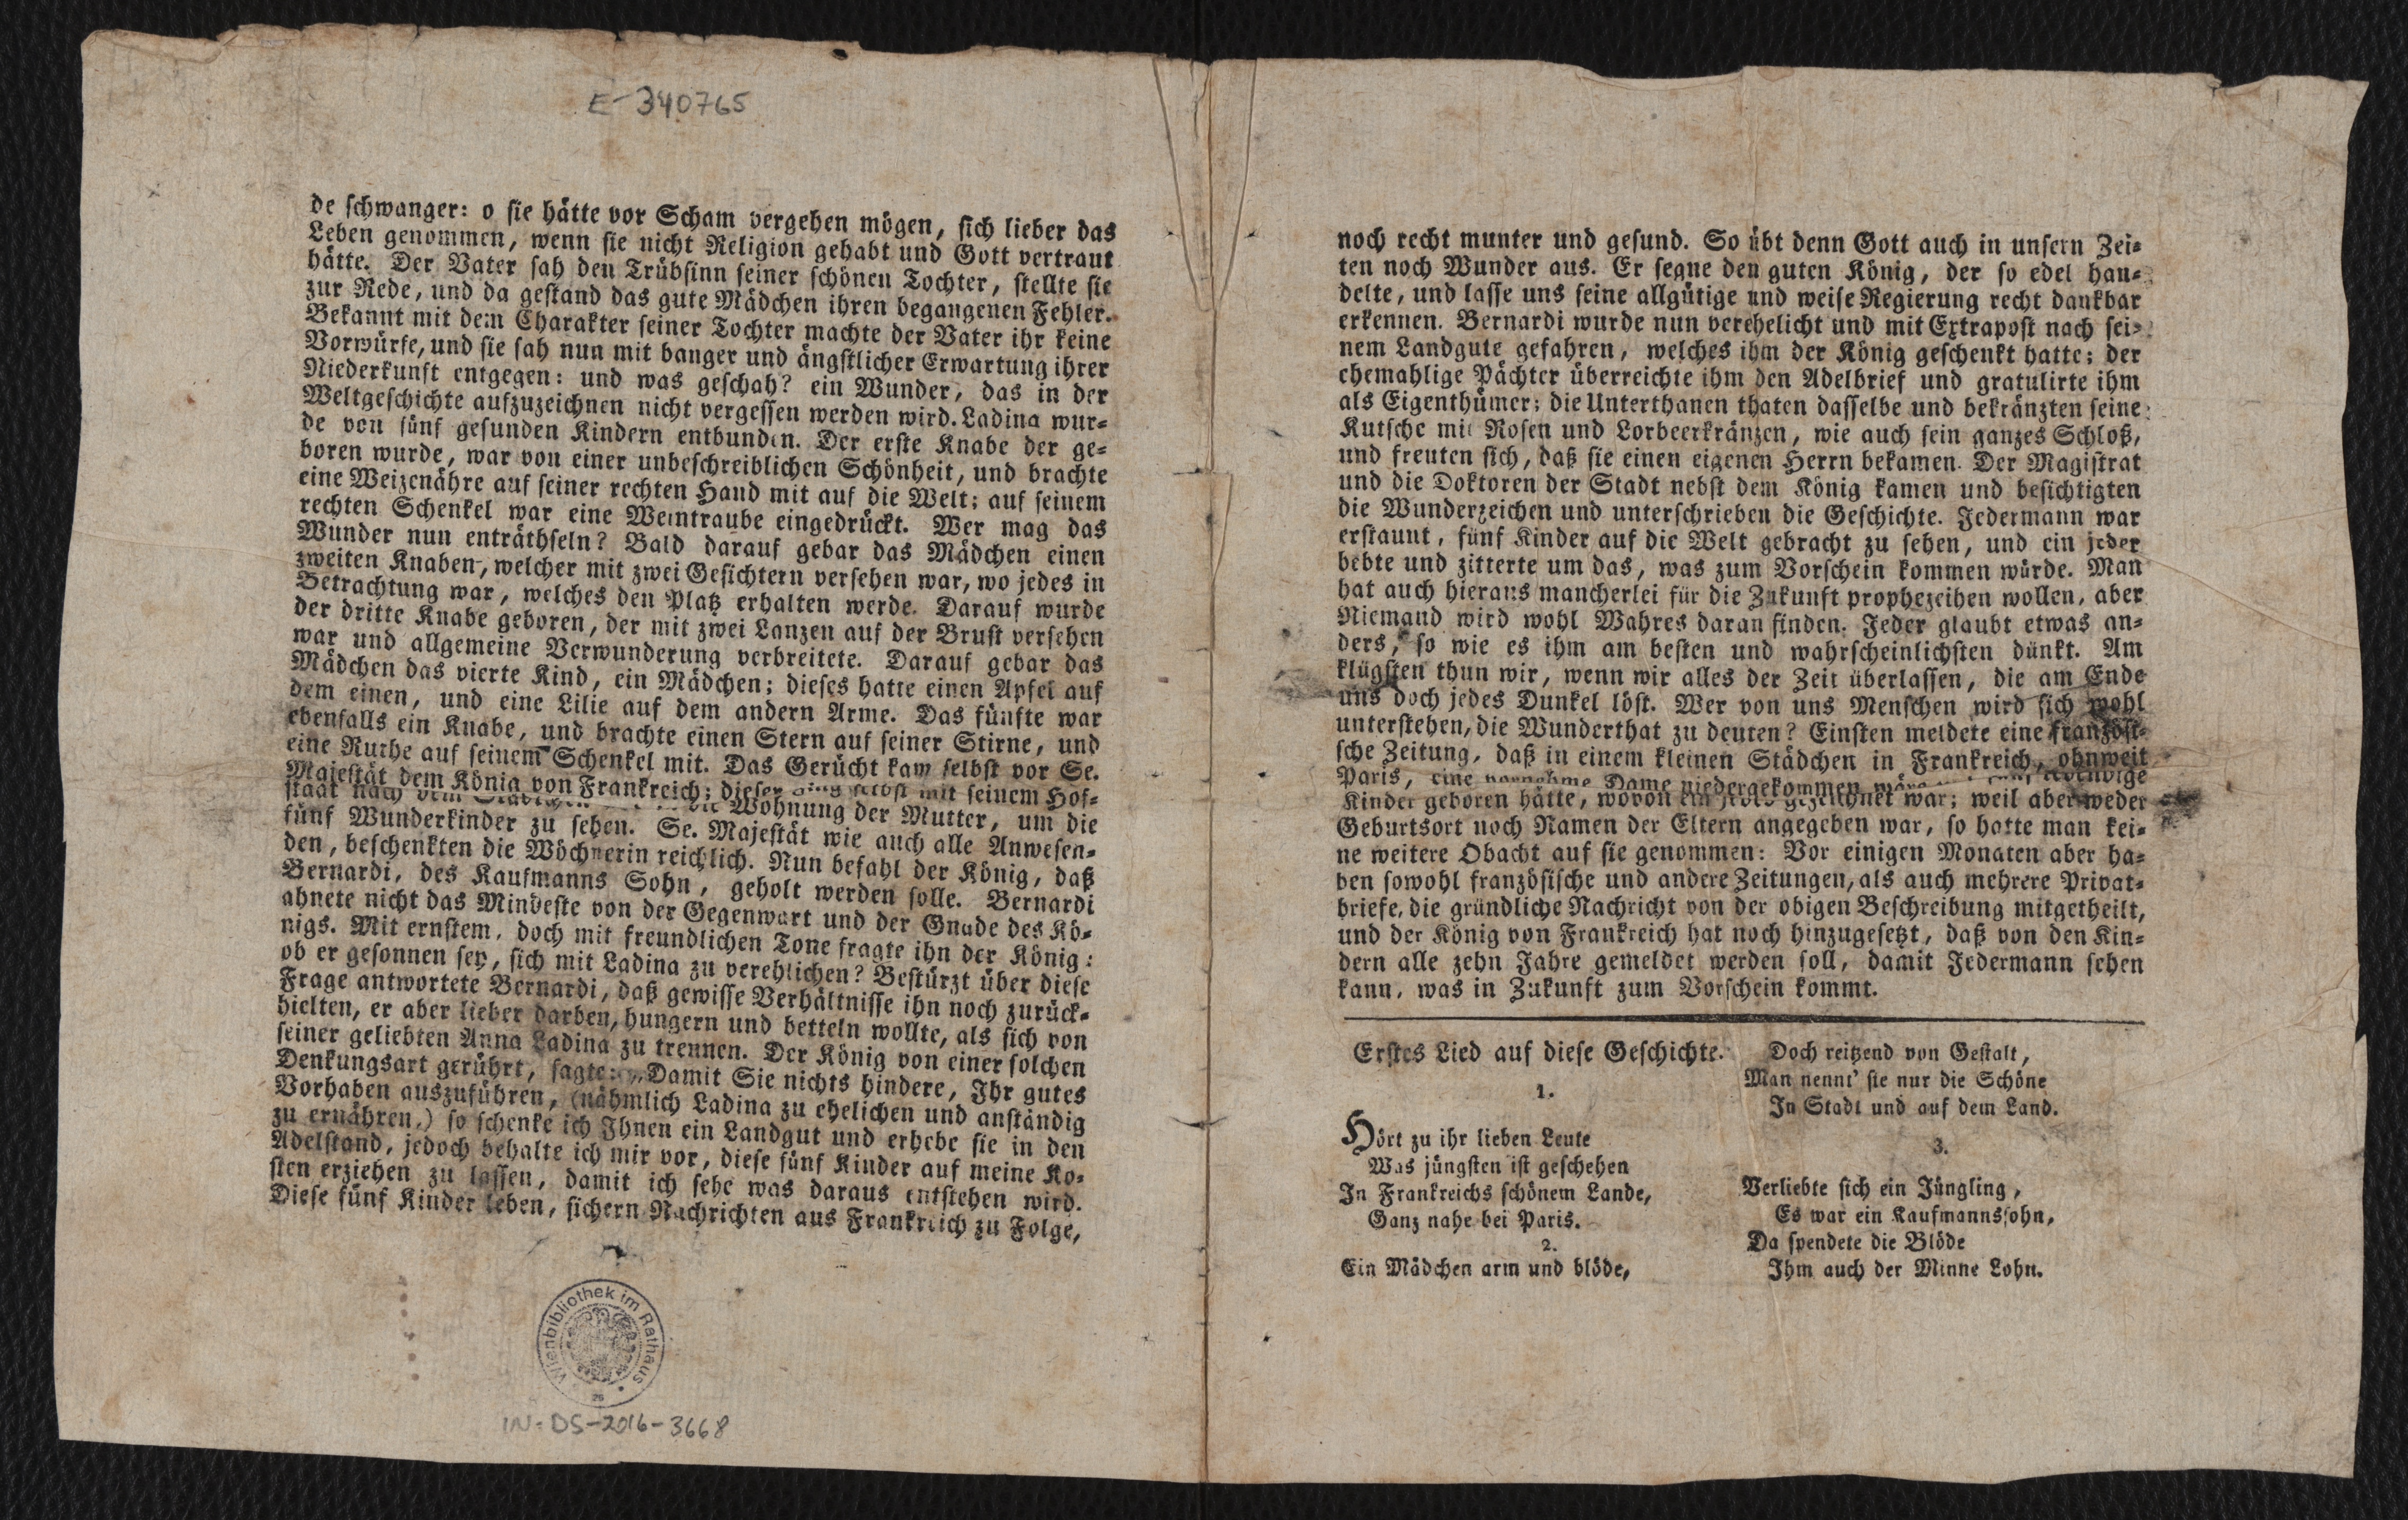 E-340765
de schwanger: o sie hätte vor Scham vergehen mögen, sich lieber das
Leben genommen, wenn sie nicht Religion gehabt und Gott vertraut
hätte. Der Vater sah den Trübsinn seiner schönen Tochter, stellte sie
zur Rede, und da gestand das gute Mädchen ihren begangenen Fehler.
Bekannt mit dem Charakter seiner Tochter machte der Vater ihr keine
Vorwürfe, und sie sah nun mit banger und ängstlicher Erwartung ihrer
Niederkunft entgegen: und was geschah? ein Wunder, das in der
Weltgeschichte aufzuzeichnen nicht vergessen werden wird. Ladina wur-
de von fünf gesunden Kindern entbunden. Der erste Knabe der ge-
boren wurde, war von einer unbeschreiblichen Schönheit, und brachte
eine Weizenähre auf seiner rechten Hand mit auf die Welt; auf seinem
rechten Schenkel war eine Weintraube eingedrückt. Wer mag das
Wunder nun enträthseln? Bald darauf gebar das Mädchen einen
zweiten Knaben, welcher mit zwei Gesichtern versehen war, wo jedes in
Betrachtung war, welches den Platz erhalten werde. Darauf wurde
der dritte Knabe geboren, der mit zwei Lanzen auf der Brust versehen
war und allgemeine Verwunderung verbreitete. Darauf gebar das
Mädchen das vierte Kind, ein Mädchen; dieses hatte einen Apfel auf
dem einen, und eine Lilie auf dem andern Arme. Das fünfte war
ebenfalls ein Knabe, und brachte einen Stern auf seiner Stirne, und
eine Ruthe auf seinem Schenkel mit. Das Gerücht kam selbst vor Se.
Majestät dem König von Frankreich; dieser ging selbst mit seinem Hof-
staat nach dem Wohnung der Mutter, um die
fünf Wunderkinder zu sehen. Se. Majestät wie auch alle Anwesen-
den, beschenkten die Wöchnerin reichlich. Nun befahl der König, daß
Bernardi, des Kaufmanns Sohn, geholt werden solle. Bernardi
ahnete nicht das Mindeste von der Gegenwart und der Gnade des Kö-
nigs. Mit ernstem, doch mit freundlichen Tone fragte ihn der König:
ob er gesonnen sey, sich mit Ladina zu verehlichen? Bestürzt über diese
Frage antwortete Bernardi, daß gewisse Verhältnisse ihn noch zurück-
hielten, er aber lieber darben, hungern und betteln wollte, als sich von
seiner geliebten Anna Ladina zu trennen. Der König von einer solchen
Denkungsart gerührt, sagte: „Damit Sie nichts hindere, Ihr gutes
Vorhaben auszuführen, (nähmlich Ladina zu ehelichen und anständig
zu ernähren,) so schenke ich Ihnen ein Landgut und erhebe sie in den
Adelstand, jedoch behalte ich mir vor, diese fünf Kinder auf meine Ko-
sten erziehen zu lassen, damit ich sehe was daraus entstehen wird.
Diese fünf Kinder leben, sichern Nachrichten aus Frankreich zu Folge,
Wienbibliothek im Rathaus
26
IN-DS-2016-3668
noch recht munter und gesund. So übt denn Gott auch in unsern Zei-
ten noch Wunder aus. Er segne den guten König, der so edel han-
delte, und lasse uns seine allgütige und weise Regierung recht dankbar
erkennen. Bernardi wurde nun verehelicht und mit Extrapost nach sei-
nem Landgute gefahren, welches ihm der König geschenkt hatte; der
ehemahlige Pächter überreichte ihm den Adelbrief und gratulirte ihm
als Eigenthümer; die Unterthanen thaten dasselbe und bekränzten seine
Kutsche mit Rosen und Lorbeerkränzen, wie auch sein ganzes Schloß,
und freuten sich, daß sie einen eigenen Herrn bekamen. Der Magistrat
und die Doktoren der Stadt nebst dem König kamen und besichtigten
die Wunderzeichen und unterschrieben die Geschichte. Jedermann war
erstaunt, fünf Kinder auf die Welt gebracht zu sehen, und ein jeder
bebte und zitterte um das, was zum Vorschein kommen würde. Man
hat auch hieraus mancherlei für die Zukunft prophezeihen wollen, aber
Niemand wird wohl Wahres daran finden. Jeder glaubt etwas an-
ders, so wie es ihm am besten und wahrscheinlichsten dünkt. Am
klügsten thun wir, wenn wir alles der Zeit überlassen, die am Ende
uns doch jedes Dunkel löst. Wer von uns Menschen wird sich wohl
unterstehen, die Wunderthat zu deuten? Einsten meldete eine französi-
sche Zeitung, daß in einem kleinen Städchen in Frankreich, ohnweit
Paris, eine vornehme Dame niedergekommen wäre lebendige
Kinder geboren hätte, wovon ein jedes gezeichnet war; weil aber weder
Geburtsort noch Namen der Eltern angegeben war, so hatte man kei-
ne weitere Obacht auf sie genommen: Vor einigen Monaten aber ha-
ben sowohl französische und andere Zeitungen, als auch mehrere Privat-
briefe, die gründliche Nachricht von der obigen Beschreibung mitgetheilt,
und der König von Frankreich hat noch hinzugesetzt, daß von den Kin-
dern alle zehn Jahre gemeldet werden soll, damit Jedermann sehen
kann, was in Zukunft zum Vorschein kommt.
Erstes Lied auf diese Geschichte.
1.
Hört zu ihr lieben Leute
Was jüngsten ist geschehen
In Frankreichs schönem Lande,
Ganz nahe bei Paris.
2.
Ein Mädchen arm und blöde,
Doch reitzend von Gestalt,
Man nennt' sie nur die Schöne
In Stadt und auf dem Land.
3.
Verliebte sich ein Jüngling,
Es war ein Kaufmannssohn,
Da spendete die Blöde
Ihm auch der Minne Lohn.